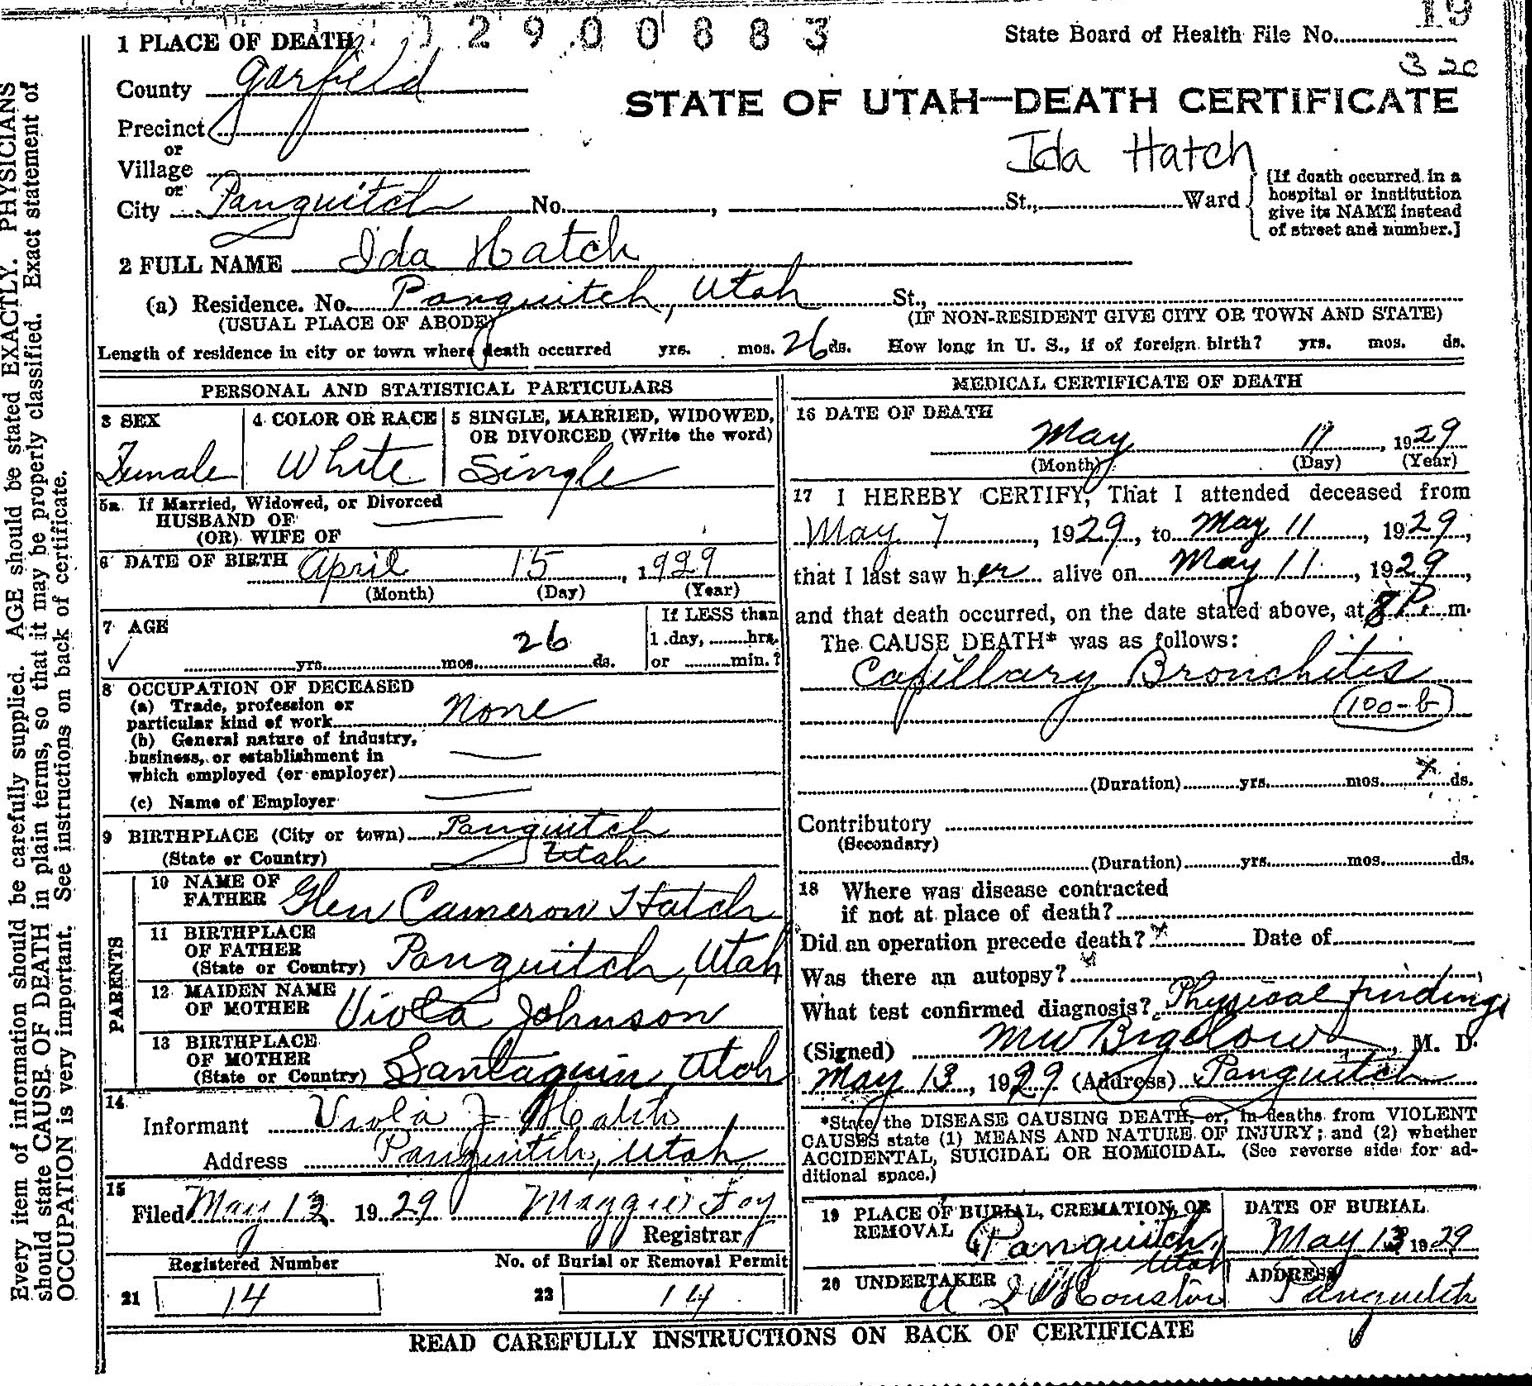 19
02900883
1 PLACE OF DEATH
State Board of Health File No.
320
County Garfield
STATE OF UTAH—DEATH CERTIFICATE
Precinct
or
Ida Hatch
Village
or
City Panguitch No. , St., Ward
[If death occurred in a
hospital or institution
give its NAME instead
of street and number.]
2 FULL NAME Ida Hatch
(a) Residence. No. Panguitch, Utah St.,
(USUAL PLACE OF ABODE) (IF NON-RESIDENT GIVE CITY OR TOWN AND STATE)
Length of residence in city or town where death occurred yrs. mos. 26 ds. How long in U. S., if of foreign birth? yrs. mos. ds.
PERSONAL AND STATISTICAL PARTICULARS
3 SEX
Female
4 COLOR OR RACE
White
5 SINGLE, MARRIED, WIDOWED,
OR DIVORCED (Write the word)
Single
5a If Married, Widowed, or Divorced
HUSBAND OF
(OR) WIFE OF
6 DATE OF BIRTH April 15, 1929
(Month) (Day) (Year)
7 AGE
yrs. mos. 26 ds.
If LESS than
1 day, hrs.
or min.?
8 OCCUPATION OF DECEASED
(a) Trade, profession or
particular kind of work None
(b) General nature of industry,
business, or establishment in
which employed (or employer)
(c) Name of Employer
9 BIRTHPLACE (City or town) Panguitch
(State or Country) Utah
PARENTS
10 NAME OF
FATHER Glen Cameron Hatch
11 BIRTHPLACE
OF FATHER
(State or Country) Panguitch, Utah
12 MAIDEN NAME
OF MOTHER Viola Johnson
13 BIRTHPLACE
OF MOTHER
(State or Country) Santaquin, Utah
14
Informant Viola J Hatch
Address Panguitch, Utah,
15
Filed May 13 1929 Maggie Foy
Registrar
Registered Number
21 14
No. of Burial or Removal Permit
22 14
MEDICAL CERTIFICATE OF DEATH
16 DATE OF DEATH
May 11, 1929
(Month) (Day) (Year)
17 I HEREBY CERTIFY, That I attended deceased from
May 7, 1929, to May 11, 1929,
that I last saw her alive on May 11, 1929,
and that death occurred, on the date stated above, at 8 P. m.
The CAUSE DEATH* was as follows:
Capillary Bronchitis
(100-b)
(Duration) yrs. mos. ds.
Contributory
(Secondary)
(Duration) yrs. mos. ds.
18 Where was disease contracted
if not at place of death?
Did an operation precede death? x Date of
Was there an autopsy?
What test confirmed diagnosis? Physical findings
(Signed) MW Bigelow, M. D.
May 13, 1929 (Address) Panguitch
*State the DISEASE CAUSING DEATH, or, in deaths from VIOLENT
CAUSES state (1) MEANS AND NATURE OF INJURY; and (2) whether
ACCIDENTAL, SUICIDAL OR HOMICIDAL. (See reverse side for ad-
ditional space.)
19 PLACE OF BURIAL, CREMATION, OR
REMOVAL Panguitch,
Utah
DATE OF BURIAL
May 13 1929
20 UNDERTAKER
Houston
ADDRESS
Panguitch
READ CAREFULLY INSTRUCTIONS ON BACK OF CERTIFICATE
Every item of information should be carefully supplied. AGE should be stated EXACTLY. PHYSICIANS
should state CAUSE OF DEATH in plain terms, so that it may be properly classified. Exact statement of
OCCUPATION is very important. See instructions on back of certificate.